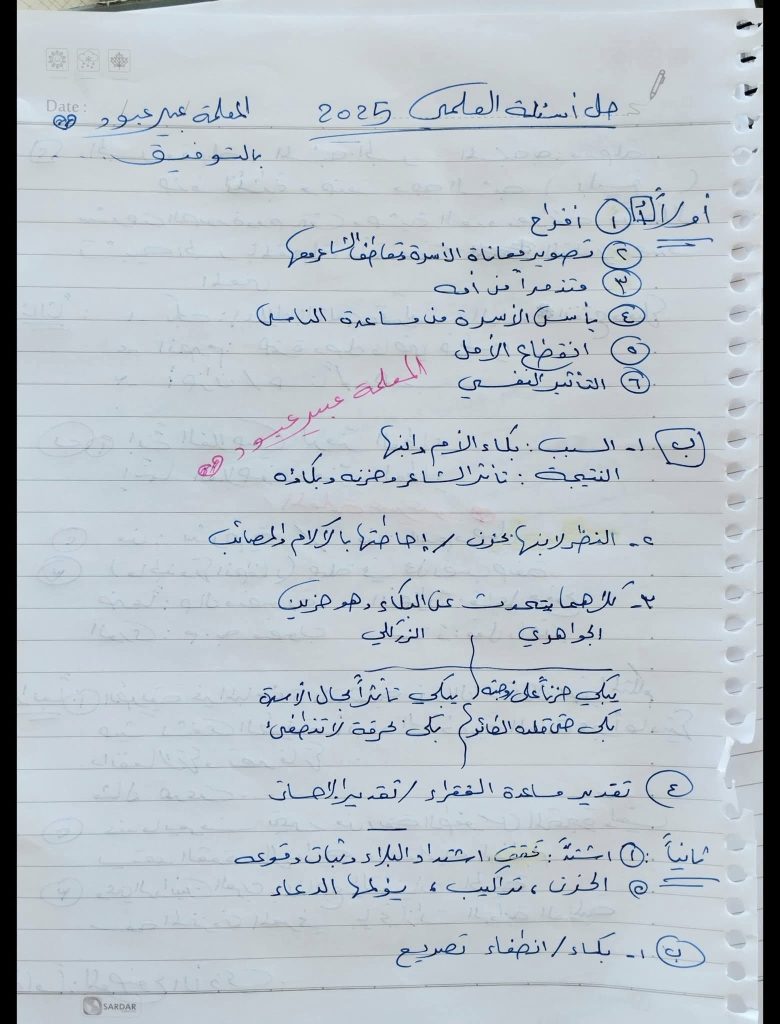 Date :
حل أسئلة العلمي 2025 المعلمة عبير عبود
بالتوفيق
أولاً أ ١ أفراح
٢ تصوير معاناة الأسرة وتعاطف الشاعر معها
٣ متذمراً من أمه
٤ يأس الأسرة من مساعدة الناس
٥ انقطاع الأمل
٦ التأثير النفسي
المعلمة عبير عبود
ب ١- السبب : بكاء الأم وابنها
النتيجة : تأثر الشاعر وحزنه وبكاؤه
٢- النظر لابنها بحزن / إحاطتها بالآلام والمصائب
٣- كلاهما يتحدث عن البكاء وهو حزين
الجواهري الزركلي
يبكي حزناً على زوجته يبكي تأثراً بحال الأسرة
بكى حتى قلبه بكى بحرقة لا تنطفئ
٤ تقدير مساعدة الفقراء / تقدير الإحسان
ثانياً : أ اشتدَّ : تحقق اشتداد البلاء وثبات وقوعه
الحزن ، تراكيب ، يؤلمها الدعاء
ب ١- بكاء / انطفاء تصريع
SARDAR